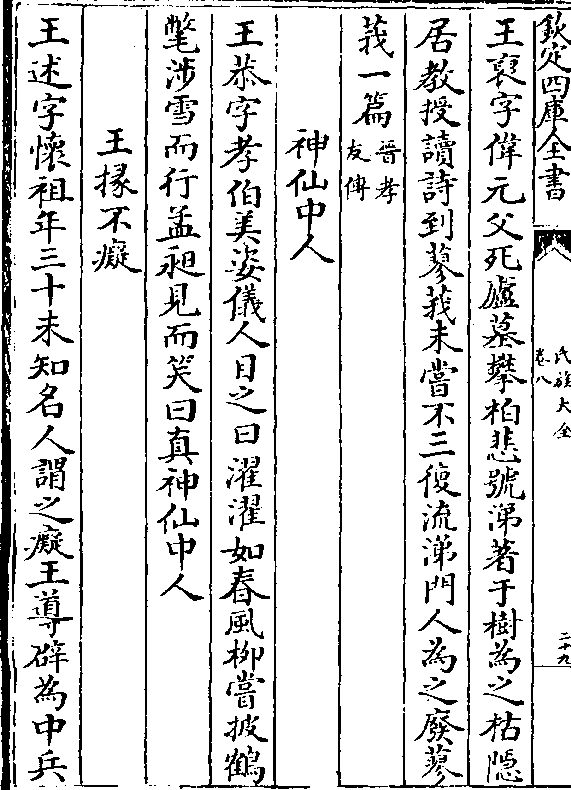 欽定四庫全書
氏族大全
卷八
二十九
王裒字偉元父死廬墓攀柏悲號涕著于樹為之枯隠
居教授讀詩到蓼莪未嘗不三復流涕門人為之廢蓼
莪一篇晉孝友傳
神仙中人
王恭字孝伯美姿儀人目之曰濯濯如春風栁嘗披鶴
氅涉雪而行孟昶見而笑曰真神仙中人
王掾不癡
王述字懐祖年三十未知名人謂之癡王導辟為中兵